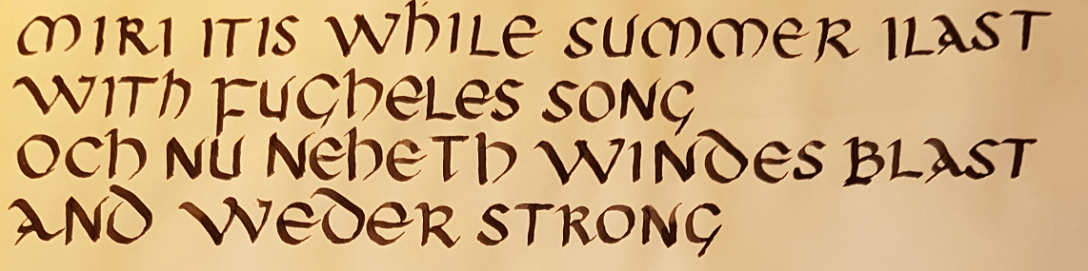 MIRI IT IS WHILE SUMMER ILAST
WITH FUGHELES SONG
OCH NU NEHETH WINDES BLAST
AND WEDER STRONG